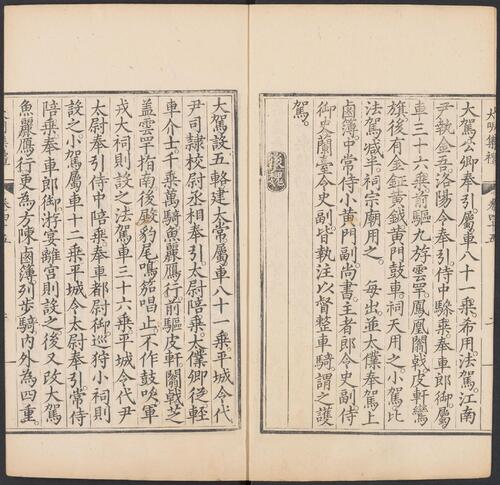 大駕公卿奉引屬車八十一乘布用法駕江南
尹執金吾洛陽令奉引侍中驂乘奉車郎御屬
車三十六乘前驅九斿雲罕鳳凰闟戟皮軒鸞
旗後有金鉦黃鉞黃門鼓車祠天用之小駕比
法駕減半祠宗廟用之　每出並太僕奉駕上
鹵簿中常侍小黃門副尚書主者郎令史副侍
御史蘭臺令史副皆執注以督整車騎謂之護
駕
後魏
大駕設五輅建太常屬車八十一乘平城令代
尹司隸校尉丞相奉引太尉陪乘太僕卿後輊
車介士千乘萬騎魚麗鴈行前驅皮軒闟戟芝
蓋雲罕指南後殿豹尾鳴笳唱上不作鼓吹軍
戎大祠則設之法駕車三十六乘平城令代尹
太尉奉引侍中陪乘奉車都尉御巡狩小祠則
設之小駕屬車十二乘平城令太尉奉引常侍
陪乘奉車郎御游宴離宮則設之後又改大駕
魚麗鴈行更為方陳鹵簿列步騎內外為四重